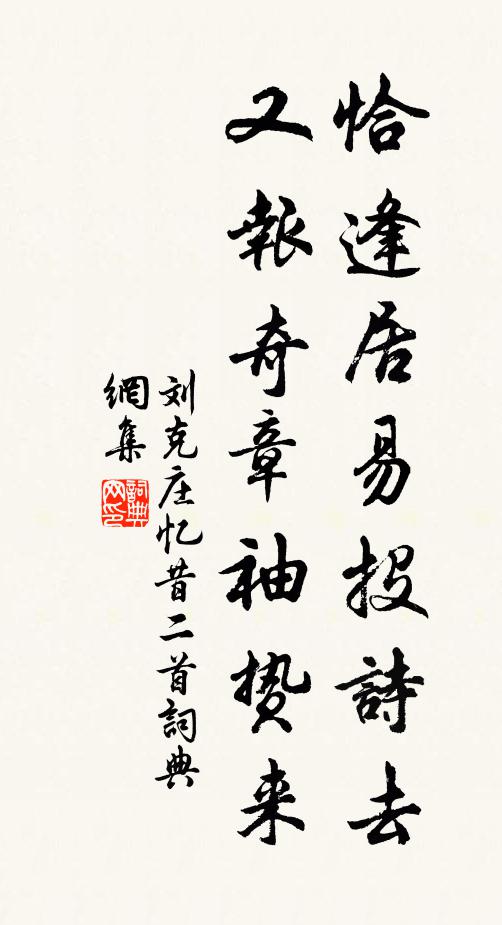 恰逢居易投詩去
又報奇章袖贽来
刘克庄忆昔二首詞典
網集
詞典
网印